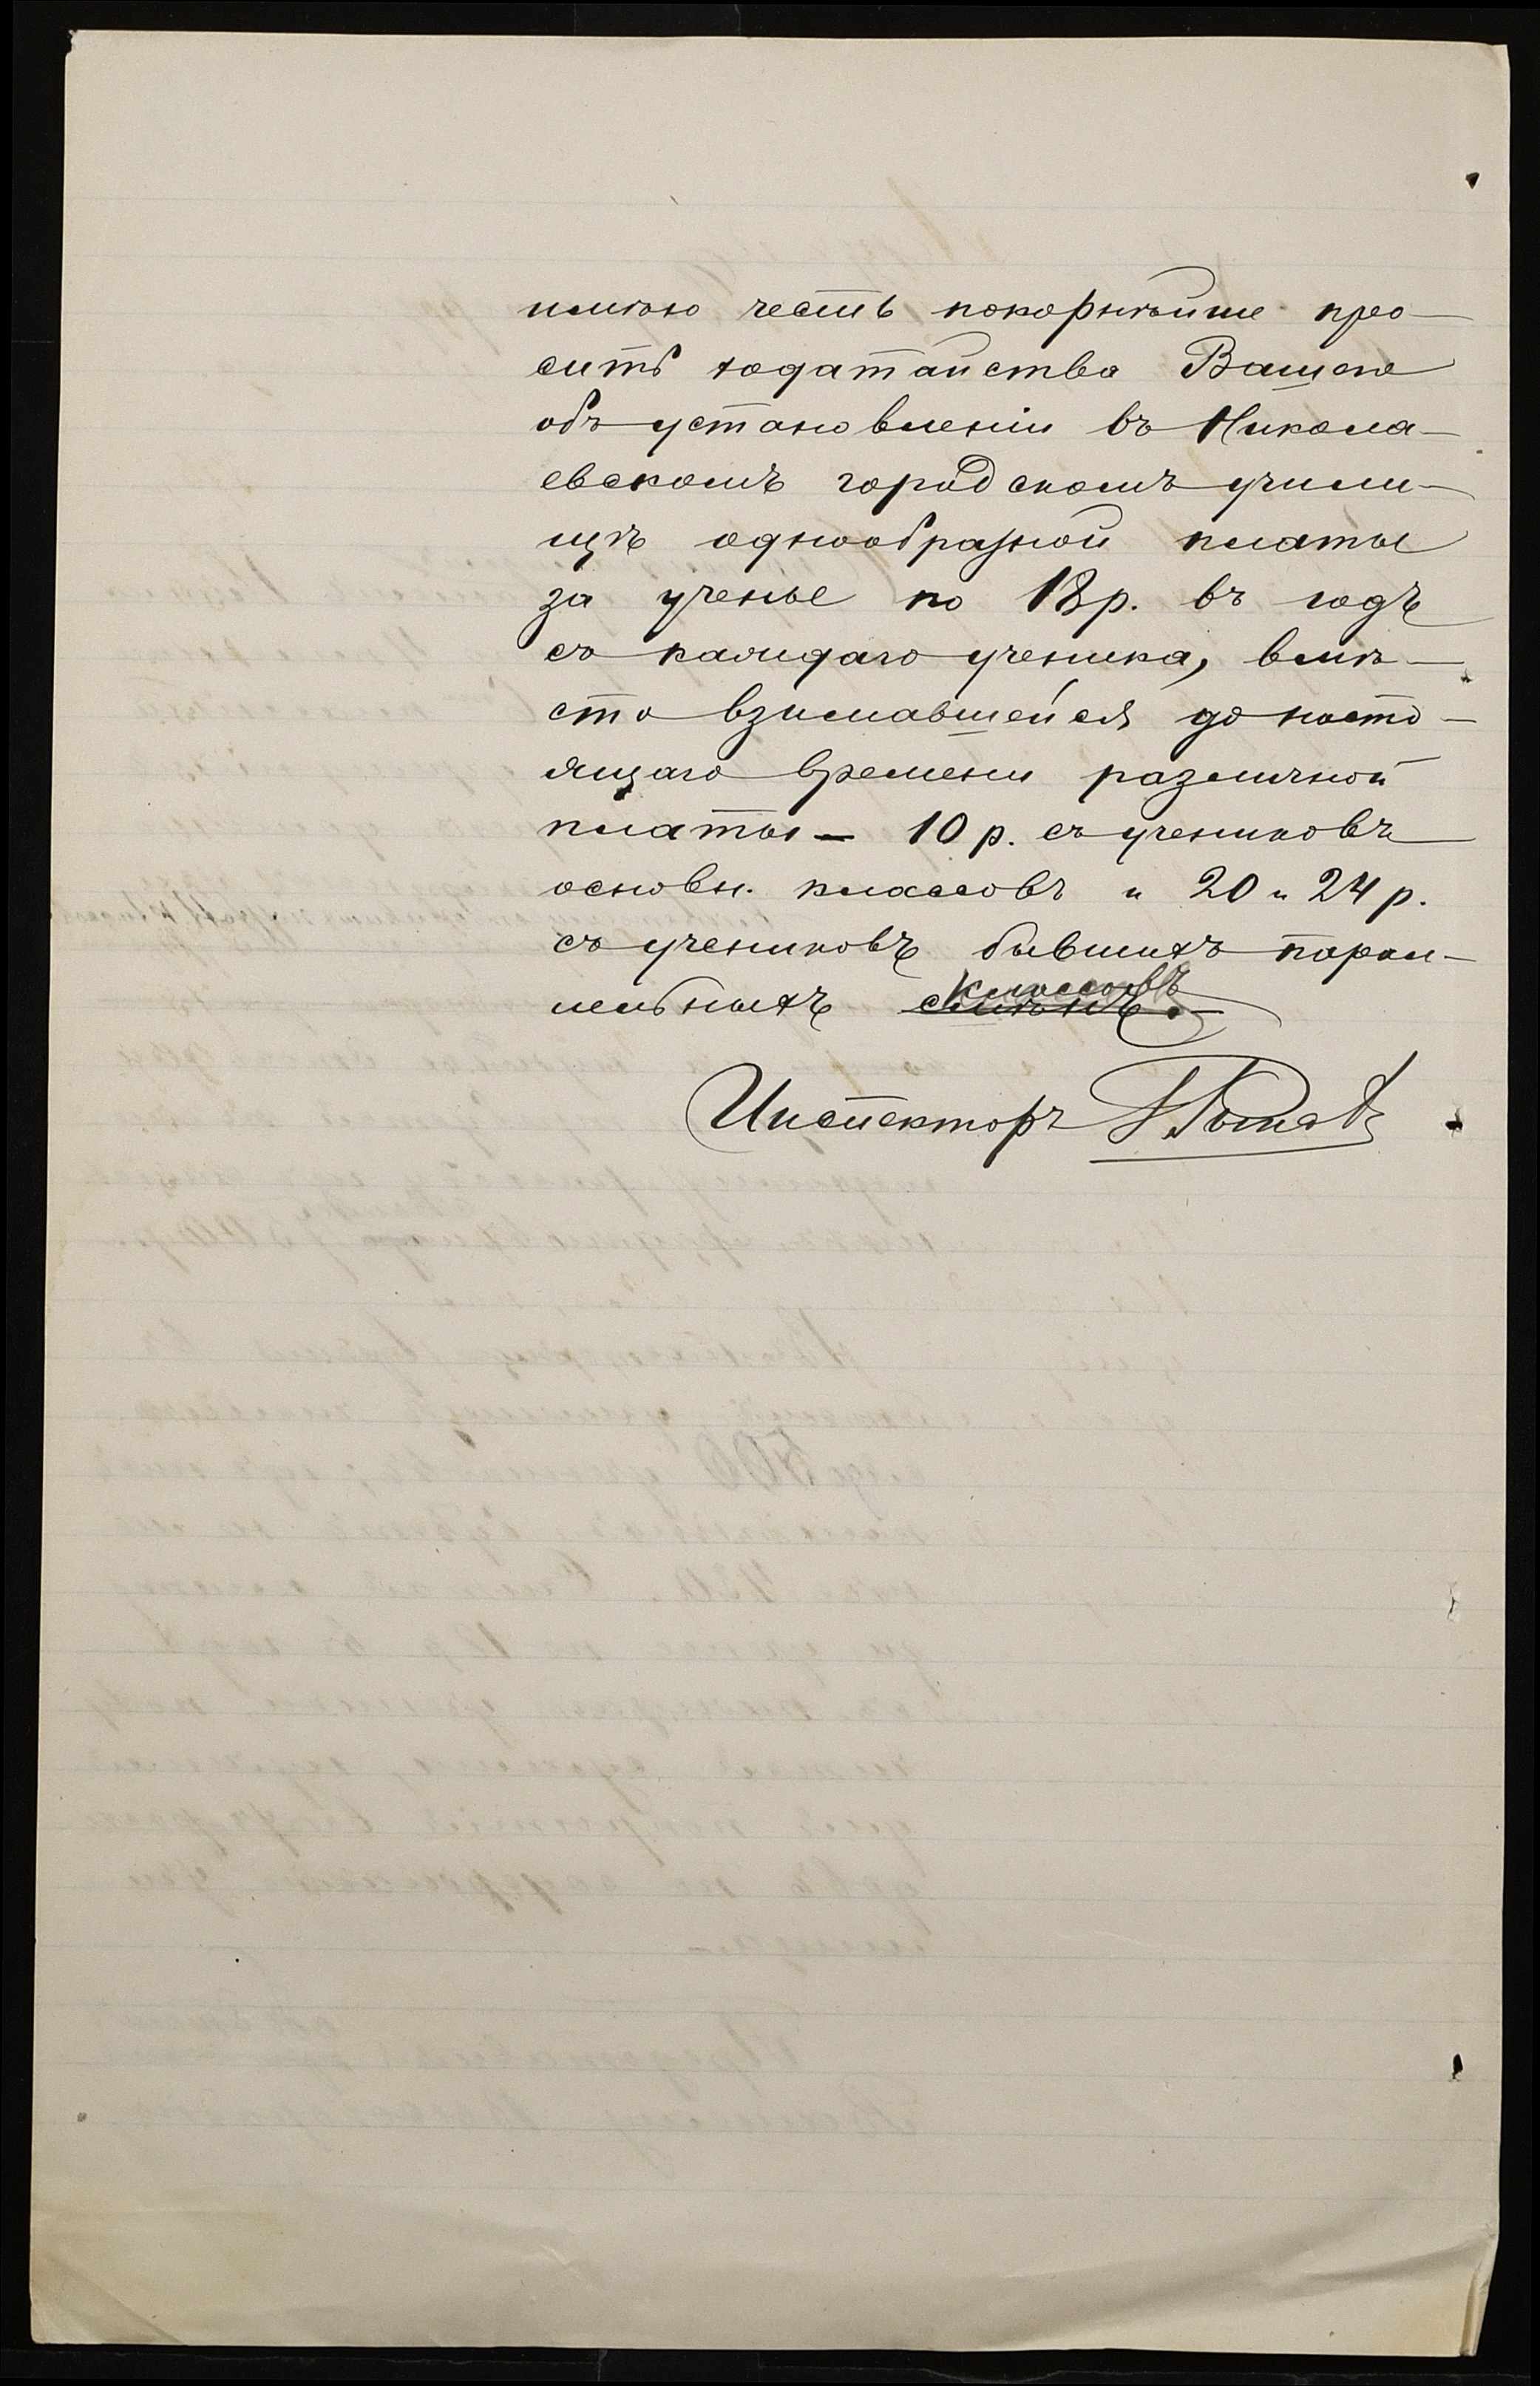 имѣю честь покорнѣйше про-
сить ходатайства Вашего
объ установленіи въ Никола-
евскомъ городскомъ учили-
щѣ однообразной платы
за ученье по 12 р. въ годъ
съ каждаго ученика, вмѣ-
сто взимавшейся до насто-
ящаго времени различной
платы — 10 р. съ учениковъ
основн. классовъ и 20 и 24 р.
съ учениковъ бывшихъ парал-
лельныхъ классовъ.
Инспекторъ